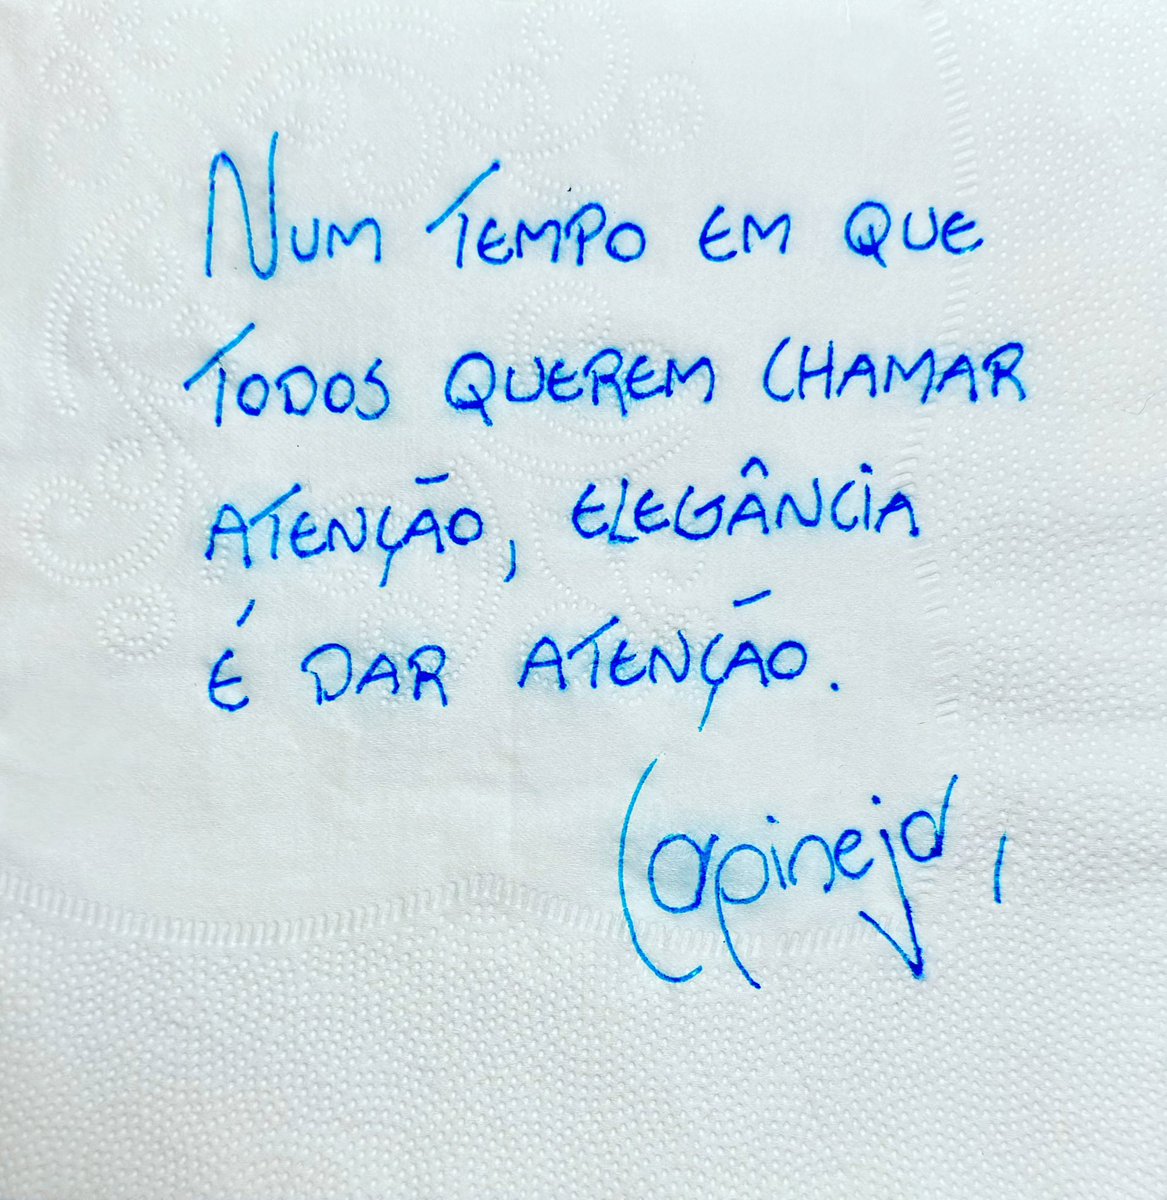 NUM TEMPO EM QUE
TODOS QUEREM CHAMAR
ATENÇÃO, ELEGÂNCIA
É DAR ATENÇÃO.
Carpinejar